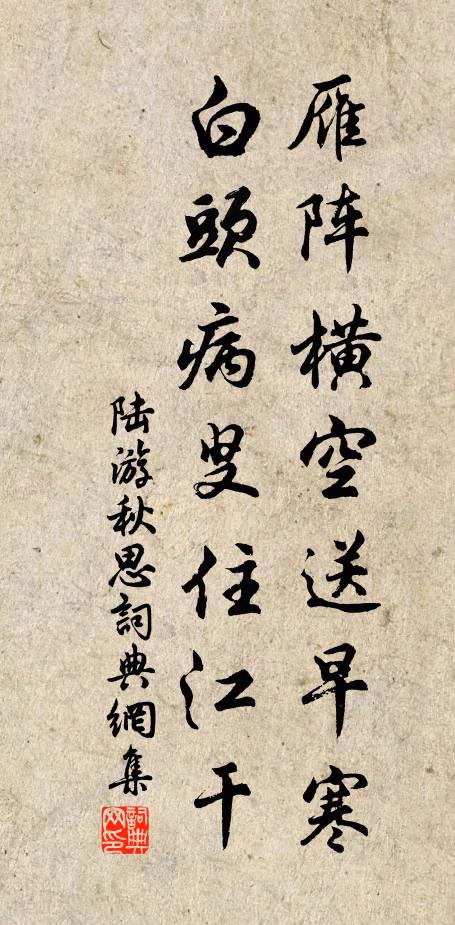 雁阵横空送早寒
白頭病叟住江干
陆游秋思詞典網集
詞典网印